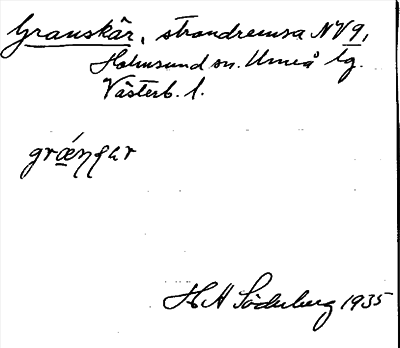 Granskär, strandremsa NV9,
Holmsund sn. Umeå tg.
Västerb. l.
grǽŋʂar
H A Söderberg 1935